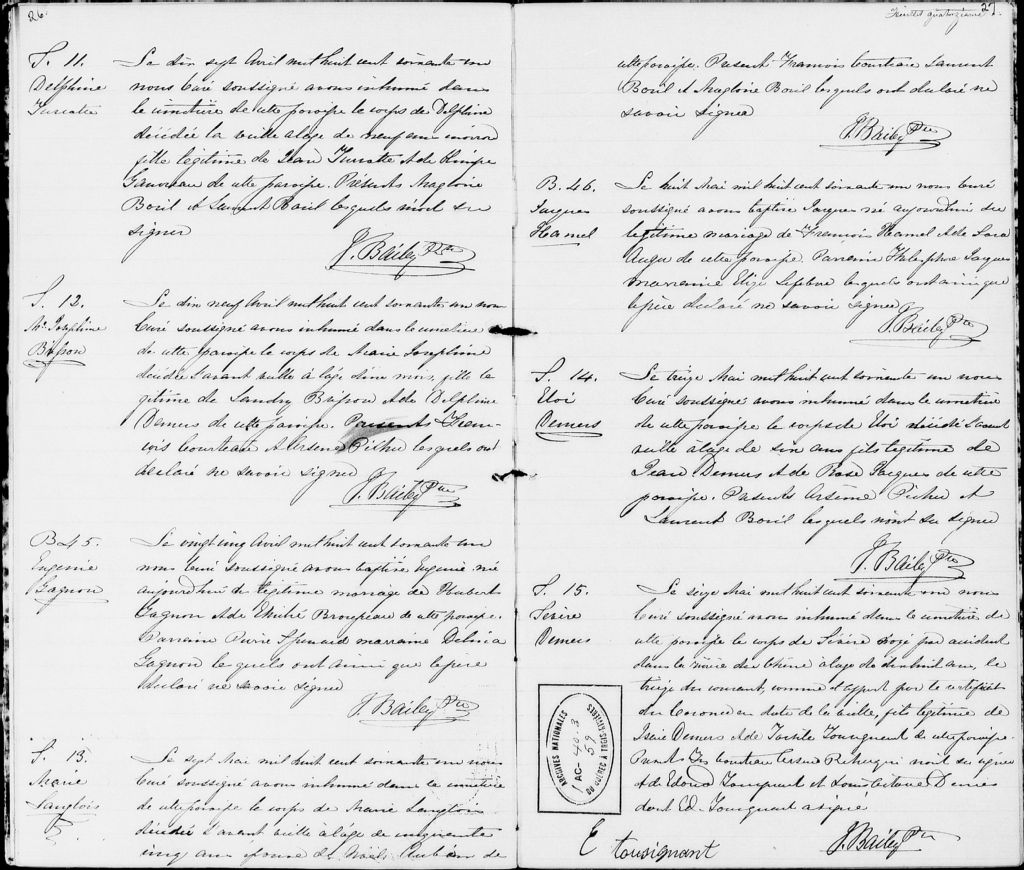 26
S. 11.
Delphine
Turcotte
Le dix sept Avril mil huit cent soixante un
nous Curé soussigné avons inhumé dans
le cimetière de cette paroisse le corps de Delphine
décédée la veille a l'age de neuf ans
fille légitime de Jean Turcotte et de
Gauvreau de cette paroisse. Présents Magloire
Boril et Laurent Boril lesquels n'ont su
signer
J. Bailey Ptre
S. 12.
Me Josephine
Bisson
Le dix neuf Avril mil huit cent soixante un nous
Curé soussigné avons inhumé dans le cimetière
de cette paroisse le corps de Marie Josephine
décédée l'avant veille à l'age d'un mois, fille lé
gitime de Landry Bisson et de Delphine
Demers de cette paroisse. Présents Fran-
cois Couteau et Arsene Picher lesquels ont
déclaré ne savoir signer
J. Bailey Ptre
B 45.
Eugenie
Gagnon
Le vingt cinq Avril mil huit cent soixante un
nous Curé soussigné avons baptisé Eugenie née
aujourd'hui de legitime mariage de Hubert
Gagnon et de Brousseau de cette paroisse.
Parrain marraine
Gagnon lesquels ont ainsi que le père
déclaré ne savoir signer
J. Bailey Ptre
S. 13.
Marie
Langlois
Le sept Mai mil huit cent soixante un nous
Curé soussigné avons inhumé dans le cimetière
de cette paroisse le corps de Marie Langlois
décédée l'avant veille à l'age de cinquante
cinq ans épouse de Noël Aubin de
27.
Feuillet quatorzième
cette paroisse. Présents Francois Couteau Laurent
Boril et Magloire Boril lesquels ont déclaré ne
savoir signer
J. Bailey Ptre
B. 46.
Jacques
Hamel
Le huit Mai mil huit cent soixante un nous Curé
soussigné avons baptisé Jacques né aujourd'hui du
legitime mariage de Francois Hamel et de
de cette paroisse. Parrain Jacques
marraine Eliza Lefebvre lesquels ont ainsi que
le père déclaré ne savoir signer
J. Bailey Ptre
S. 14.
Eloi
Demers
Le treize Mai mil huit cent soixante un nous
Curé soussigné avons inhumé dans le cimetière
de cette paroisse le corps de Eloi décédé l'avant
veille à l'age de six ans fils légitime de
Jean Demers et de Rose Jacques de cette
paroisse. Présents Arsène Picher et
Laurent Boril lesquels n'ont su signer
J. Bailey Ptre
S. 15.
Demers
Le seize Mai mil huit cent soixante un nous
Curé soussigné avons inhumé dans le cimetière de
cette paroisse le corps de noyé par accident
dans la rivière du Chêne a l'age de dix huit ans, le
treize du courant, comme il appert par le certificat
du Coroner en date de la veille, fils legitime de
Isaie Demers et de Tousignant de cette paroisse.
Présents
et de Edouard Tousignant et Demers
dont Ed. Tousignant a signé
E tousignant
J. Bailey Ptre
ARCHIVES NATIONALES
AC- 40-3
59
DU QUÉBEC À TROIS-RIVIÈRES